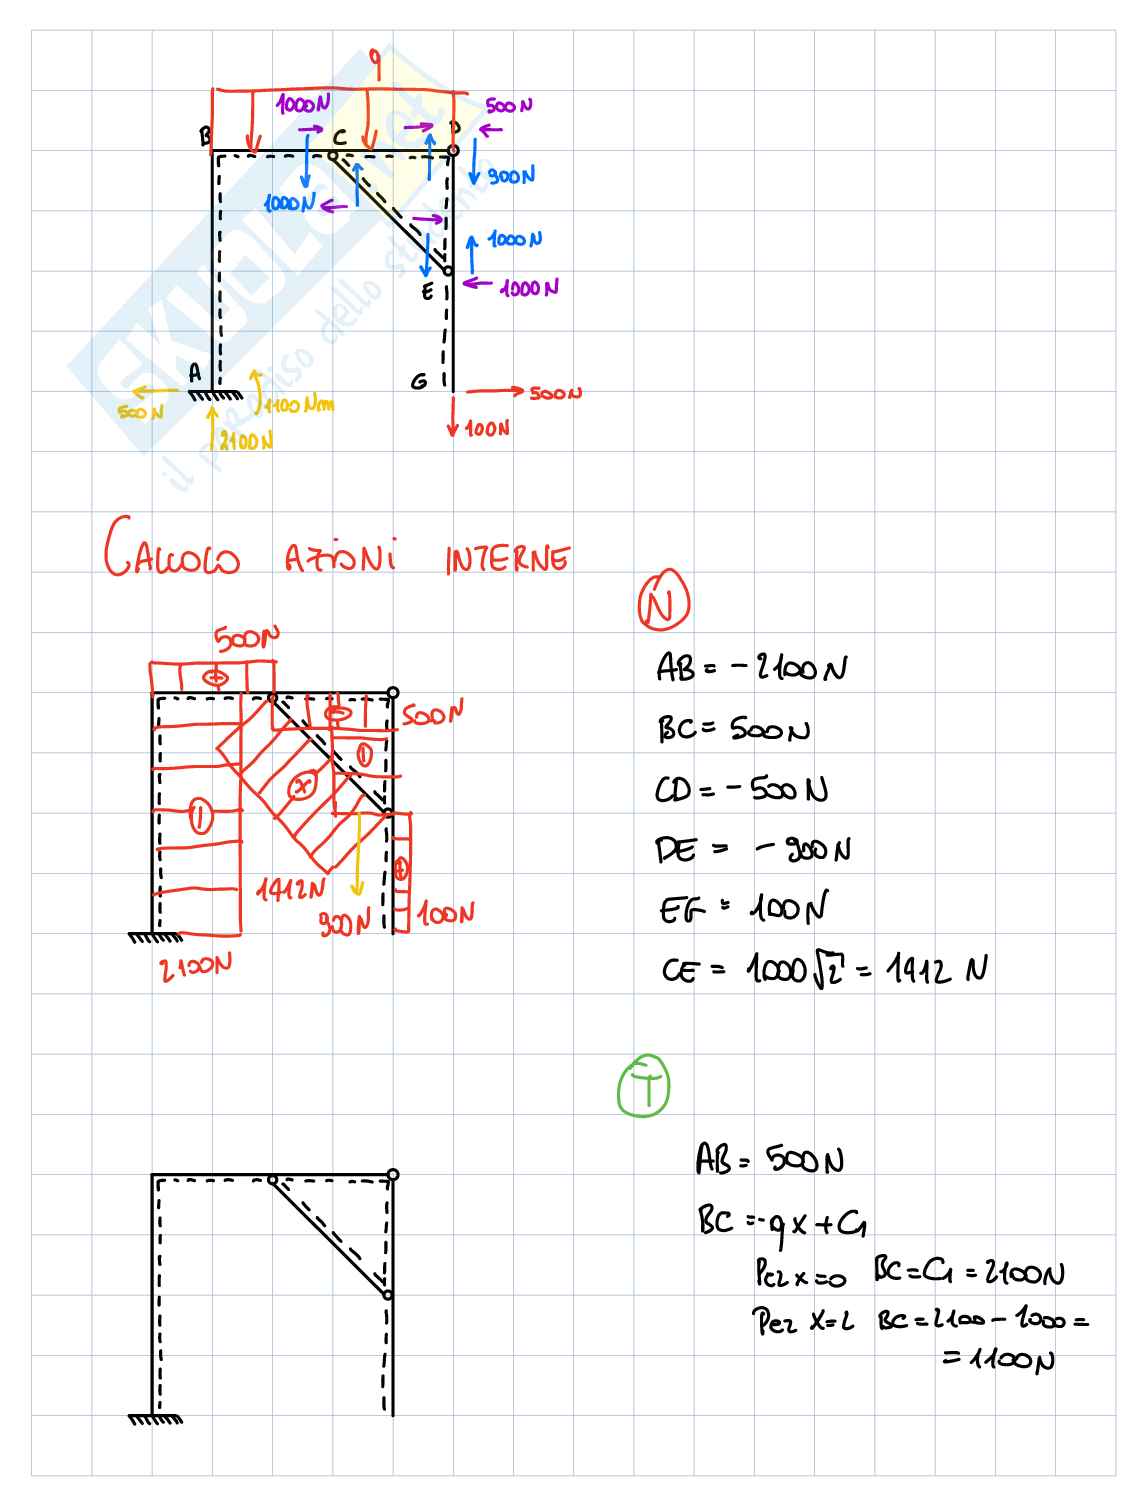 q
1000N
500N
B
C
D
1000N
900N
1000N
E
1000N
A
G
500N
500N
1100 Nm
2100N
100N
SKUOLA.net
il paradiso dello studente
CALCOLO AZIONI INTERNE
N
500N
AB = -2100N
500N
BC = 500N
CD = -500N
DE = -900N
1412N
900N
100N
EG = 100N
2100N
CE = 1000√2 = 1412 N
T
AB = 500N
BC = -qx + C1
Per x=0 BC=C1=2100N
Per x=L BC=2100-1000=
=1100N